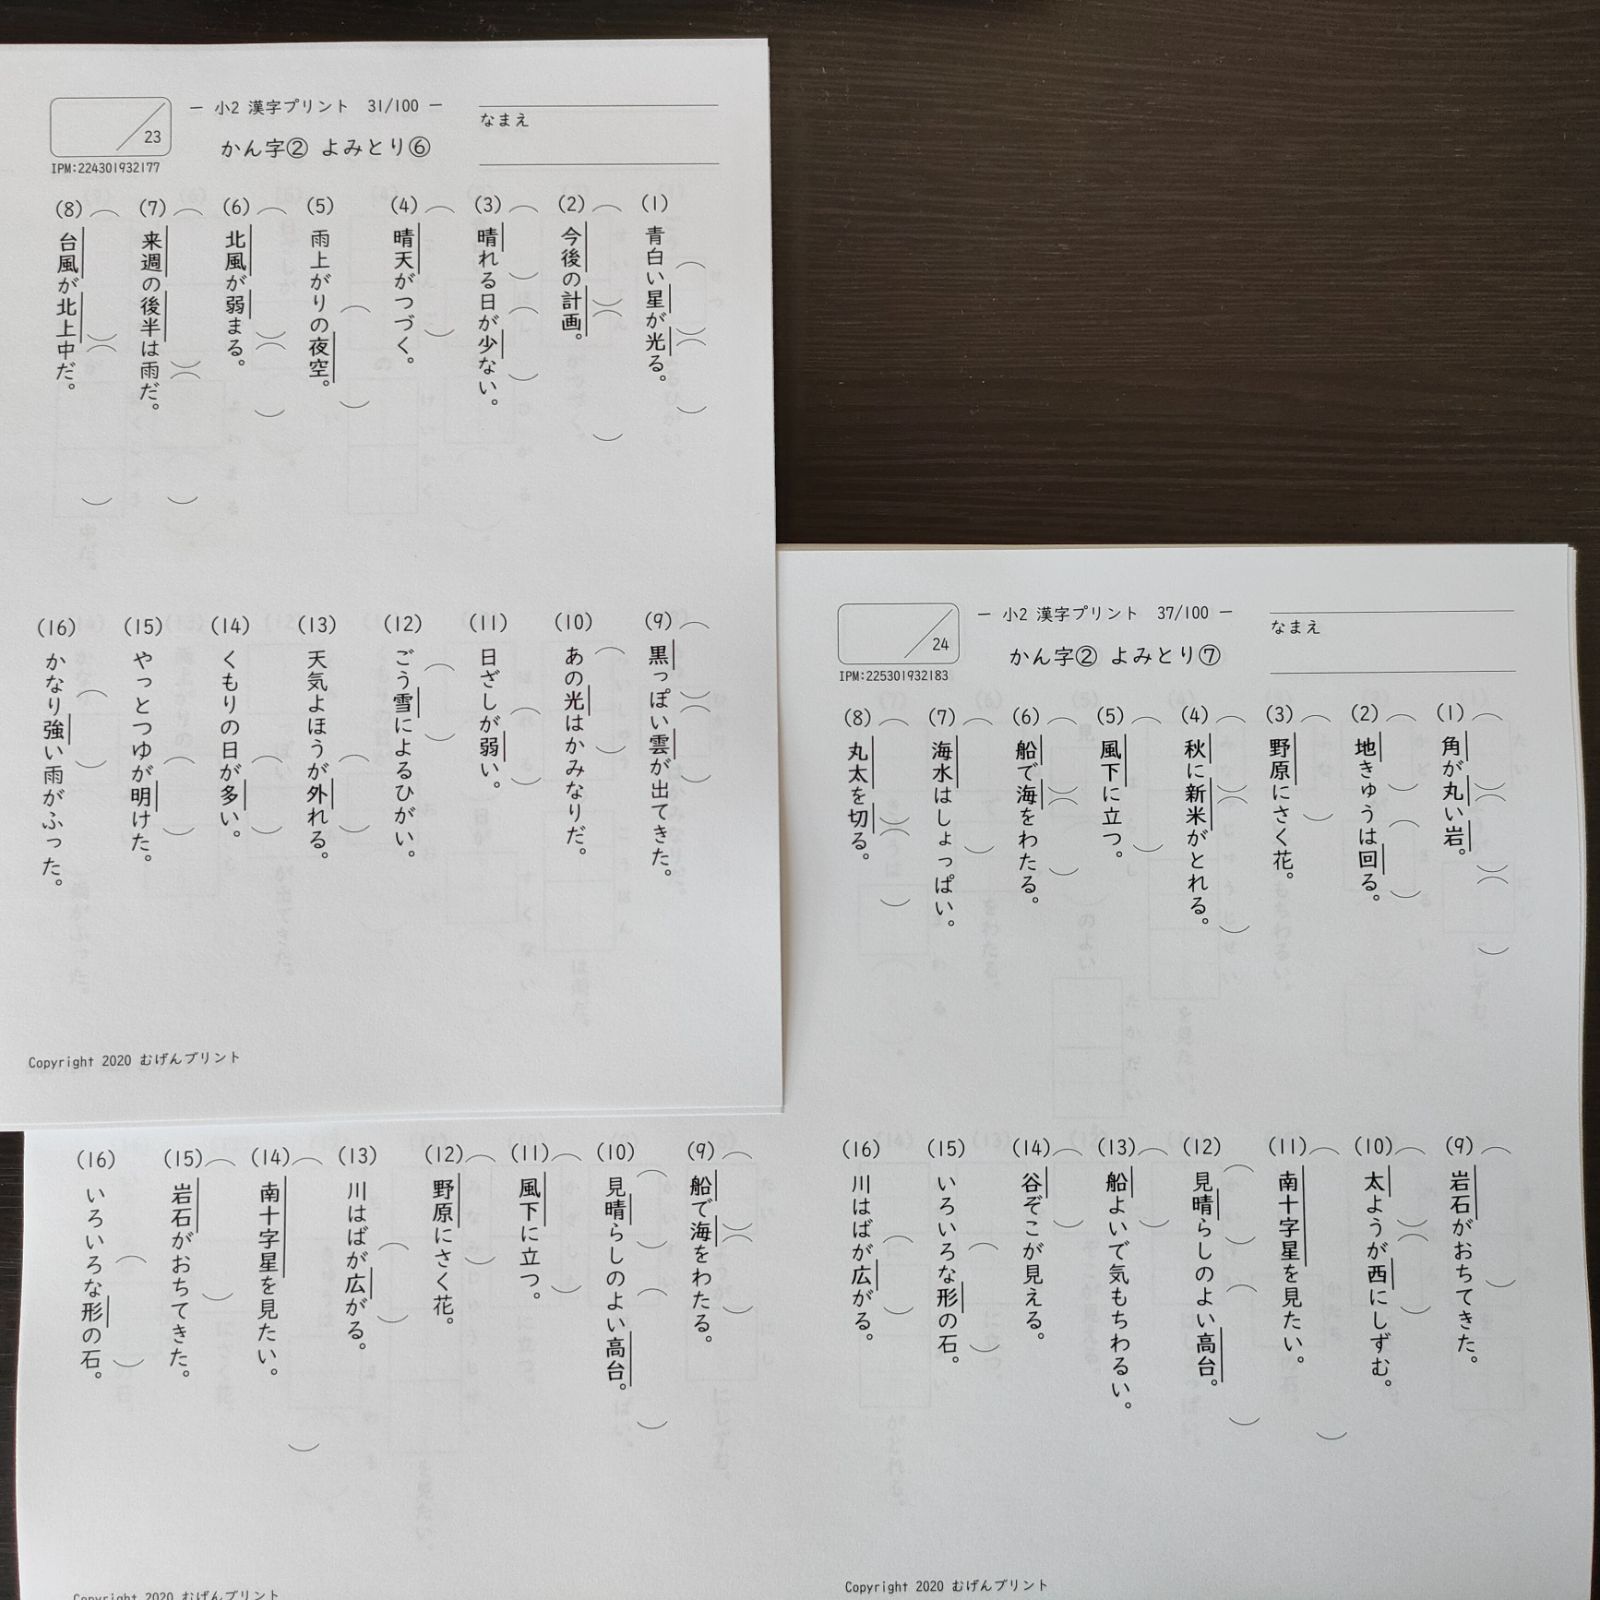 ― 小2 漢字プリント 31/100 ―
かん字② よみとり⑥
なまえ
23
IPM:224301932177
(1) 青白い星が光る。
(2) 今後の計画。
(3) 晴れる日が少ない。
(4) 晴天がつづく。
(5) 雨上がりの夜空。
(6) 北風が弱まる。
(7) 来週の後半は雨だ。
(8) 台風が北上中だ。
(9) 黒っぽい雲が出てきた。
(10) あの光はかみなりだ。
(11) 日ざしが弱い。
(12) ごう雪によるひがい。
(13) 天気よほうが外れる。
(14) くもりの日が多い。
(15) やっとつゆが明けた。
(16) かなり強い雨がふった。
Copyright 2020 むげんプリント
― 小2 漢字プリント 37/100 ―
かん字② よみとり⑦
なまえ
24
IPM:225301932183
(1) 角が丸い岩。
(2) 地きゅうは回る。
(3) 野原にさく花。
(4) 秋に新米がとれる。
(5) 風下に立つ。
(6) 船で海をわたる。
(7) 海水はしょっぱい。
(8) 丸太を切る。
(9) 岩石がおちてきた。
(10) 太ようが西にしずむ。
(11) 南十字星を見たい。
(12) 見晴らしのよい高台。
(13) 船よいで気もちわるい。
(14) 谷ぞこが見える。
(15) いろいろな形の石。
(16) 川はばが広がる。
Copyright 2020 むげんプリント
(9) 船で海をわたる。
(10) 見晴らしのよい高台。
(11) 風下に立つ。
(12) 野原にさく花。
(13) 川はばが広がる。
(14) 南十字星を見たい。
(15) 岩石がおちてきた。
(16) いろいろな形の石。
Copyright 2020 むげんプリント